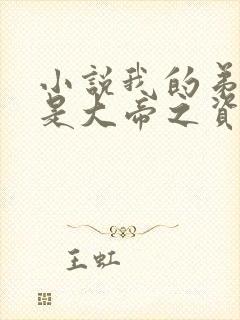 小說我的弟
是大帝之資
王虹